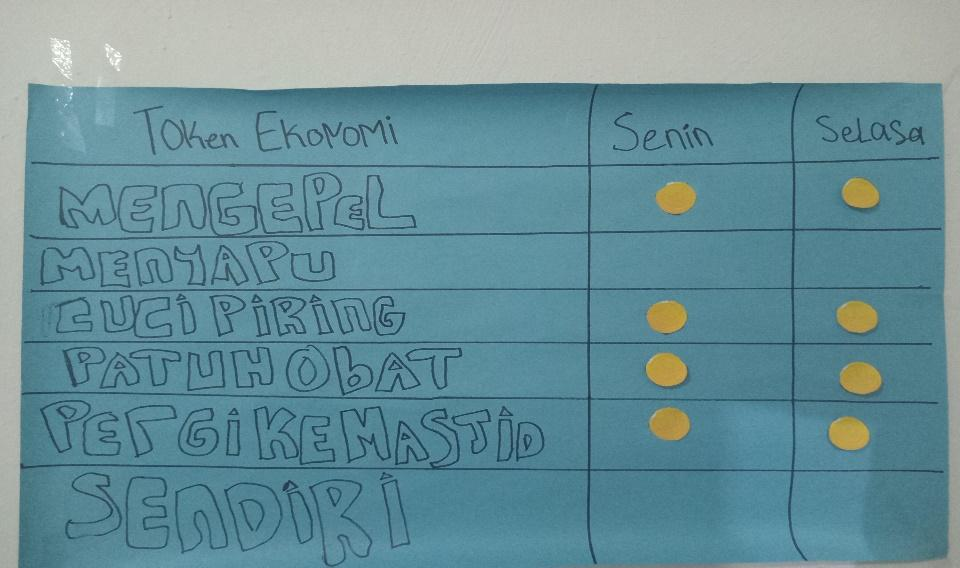 Token Ekonomi Senin Selasa
MENGEPEL
MENYAPU
CUCI PIRING
PATUH ObAT
PERGi KE MASJiD
SENDiRi